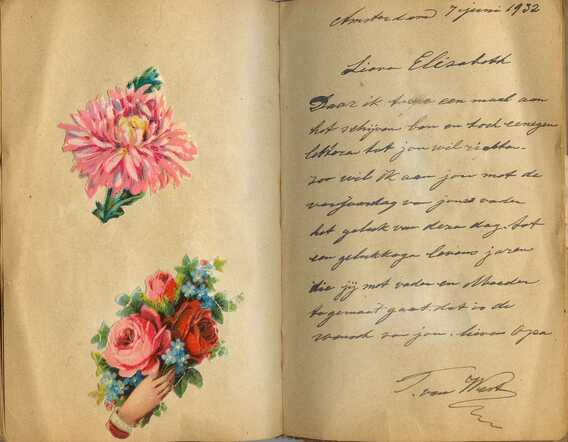 Amsterdam 7 juni 1932
Lieve Elisabeth
Daar ik twee een maal aan
het schrijven ben en toch eenigen
letters tot jou wil richten.
zoo wil ik aan jou met de
verjaardag van jouw vader
het geluk van deze dag. tot
een gelukkige levens jaren
die jij met vader en Moeder
tegemoet gaat. dat is de
wensch van jou. lieve Opa
T. van West